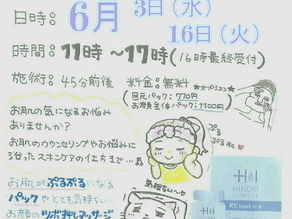 日時: 6月 3日(水)
16日(火)
時間: 11時〜17時(16時最終受付)
施術: 45分前後 料金: 無料
★★オプション★★
(目元パック: 770円
お顔全体パック: 1100円)
お肌の気になるお悩み
ありませんか?
お肌のカウンセリングやお悩みに
沿ったスキンケアの仕方まで…
お肌がぷるぷるになる
パックやとても気持ちいい
お顔のツボ押しマッサージ
気持ちいい
ぷるぷる
HINOKI